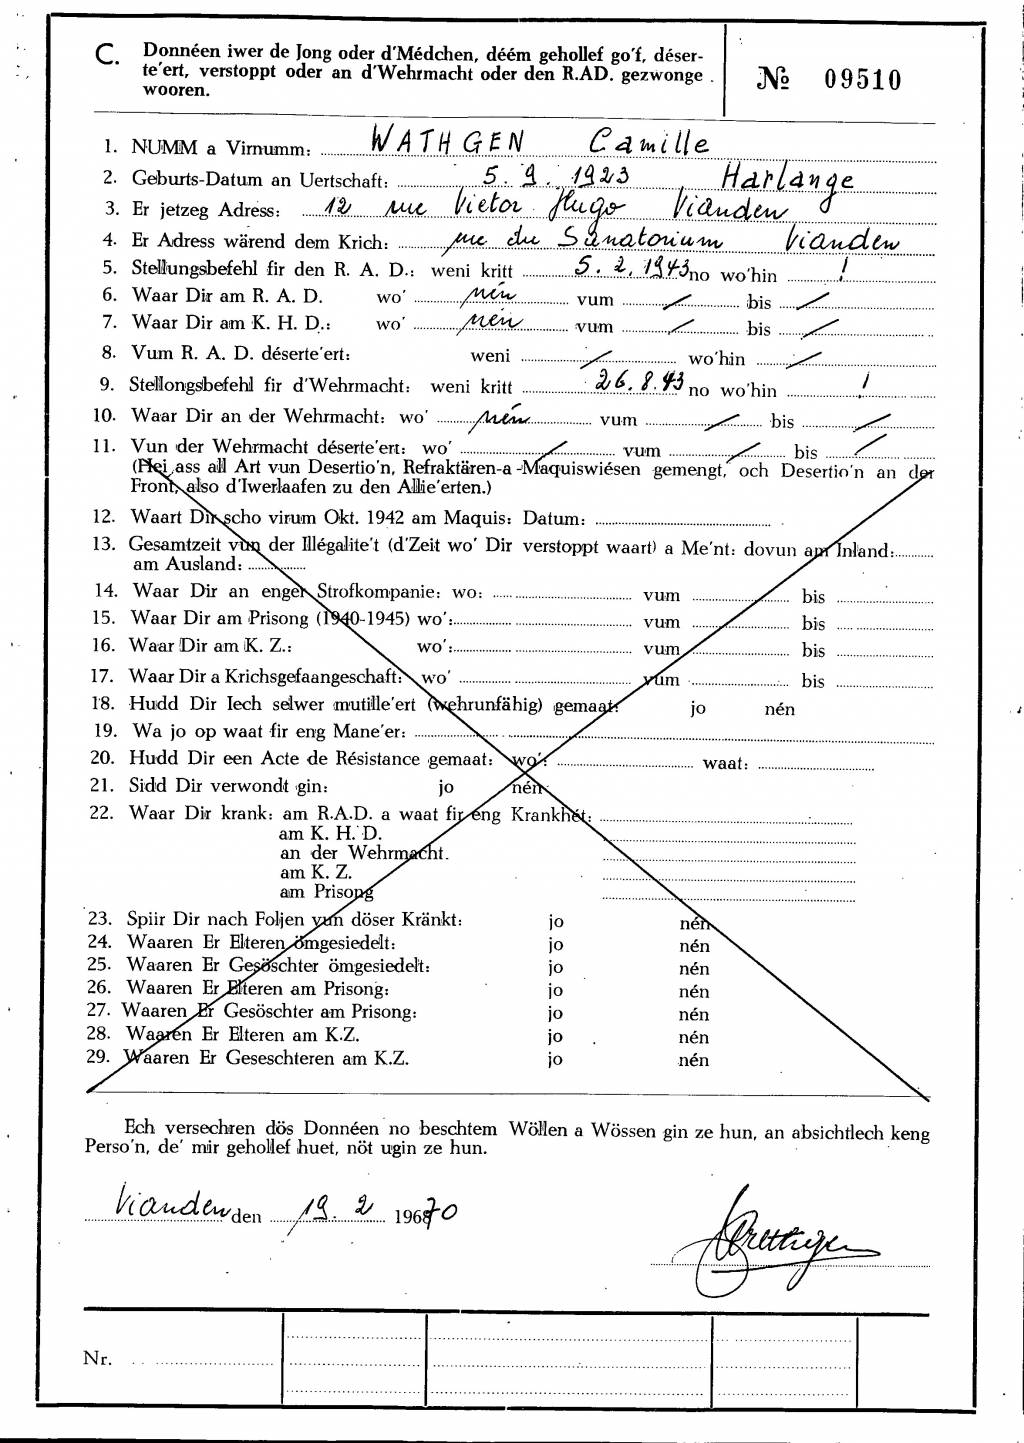 C. Donnéen iwer de Jong oder d'Médchen, déém gehollef go'f, déser-
te'ert, verstoppt oder an d'Wehrmacht oder den R.AD. gezwonge
wooren.
№ 09510
1. NUMM a Virnumm: WATHGEN Camille
2. Geburts-Datum an Uertschaft: 5. 9. 1923 Harlange
3. Er jetzeg Adress: 12 rue Victor Hugo Vianden
4. Er Adress wärend dem Krich: rue du Sanatorium Vianden
5. Stellungsbefehl fir den R. A. D.: weni kritt 5. 2. 1943 no wo'hin !
6. Waar Dir am R. A. D. wo' nén vum / bis /
7. Waar Dir am K. H. D.: wo' nén vum / bis /
8. Vum R. A. D. déserte'ert: weni / wo'hin /
9. Stellongsbefehl fir d'Wehrmacht: weni kritt 26. 8. 43 no wo'hin !
10. Waar Dir an der Wehrmacht: wo' nén vum / bis /
11. Vun der Wehrmacht déserte'ert: wo' / vum / bis /
(Hei ass all Art vun Desertio'n, Refraktären-a-Maquiswiésen gemengt, och Desertio'n an der
Front, also d'Iwerlaafen zu den Allie'erten.)
12. Waart Dir scho virum Okt. 1942 am Maquis: Datum:
13. Gesamtzeit vun der Illégalite't (d'Zeit wo' Dir verstoppt waart) a Me'nt: dovun am Inland:
am Ausland:
14. Waar Dir an enger Strofkompanie: wo: vum bis
15. Waar Dir am Prisong (1940-1945) wo': vum bis
16. Waar Dir am K. Z.: wo': vum bis
17. Waar Dir a Krichsgefaangeschaft: wo' vum bis
18. Hudd Dir Iech selwer mutille'ert (wehrunfähig) gemaat: jo nén
19. Wa jo op waat fir eng Mane'er:
20. Hudd Dir een Acte de Résistance gemaat: wo': waat:
21. Sidd Dir verwondt gin: jo nén
22. Waar Dir krank: am R.A.D. a waat fir eng Krankhét:
am K. H. D.
an der Wehrmacht.
am K. Z.
am Prisong
23. Spiir Dir nach Foljen vun döser Kränkt: jo nén
24. Waaren Er Elteren ömgesiedelt: jo nén
25. Waaren Er Gesöschter ömgesiedelt: jo nén
26. Waaren Er Elteren am Prisong: jo nén
27. Waaren Er Gesöschter am Prisong: jo nén
28. Waaren Er Elteren am K.Z. jo nén
29. Waaren Er Geseschteren am K.Z. jo nén
Ech versechren dös Donnéen no beschtem Wöllen a Wössen gin ze hun, an absichtlech keng
Perso'n, de' mir gehollef huet, nöt ugin ze hun.
Vianden den 19. 2 196 70
Nr.